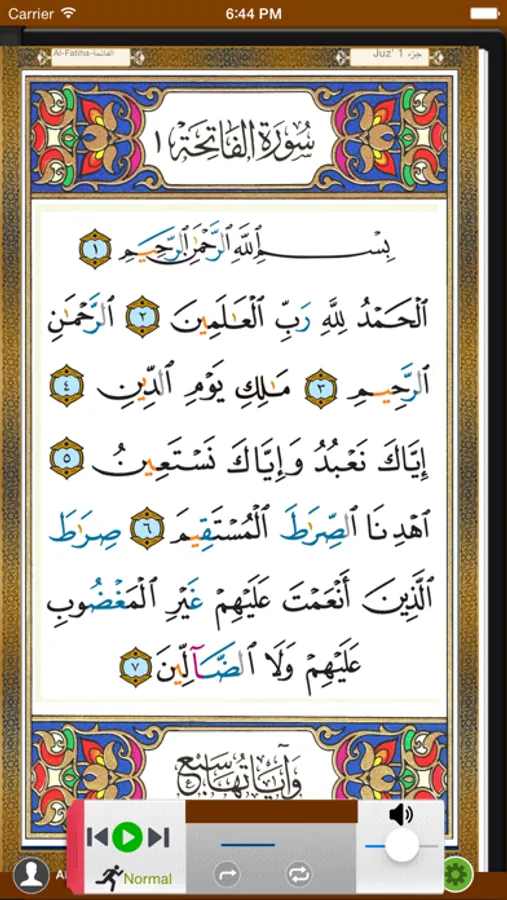 Carrier 6:44 PM
Al-Fatiha-الفاتحة Juz' 1 جزء
سُورَةُ الفَاتِحَةِ ١
بِسْمِ ٱللَّهِ ٱلرَّحْمَٰنِ ٱلرَّحِيمِ ١
ٱلْحَمْدُ لِلَّهِ رَبِّ ٱلْعَٰلَمِينَ ٢ ٱلرَّحْمَٰنِ
ٱلرَّحِيمِ ٣ مَٰلِكِ يَوْمِ ٱلدِّينِ ٤
إِيَّاكَ نَعْبُدُ وَإِيَّاكَ نَسْتَعِينُ ٥
ٱهْدِنَا ٱلصِّرَٰطَ ٱلْمُسْتَقِيمَ ٦ صِرَٰطَ
ٱلَّذِينَ أَنْعَمْتَ عَلَيْهِمْ غَيْرِ ٱلْمَغْضُوبِ
عَلَيْهِمْ وَلَا ٱلضَّآلِّينَ ٧
وَآيَاتُهَا سَبْعٌ
Normal